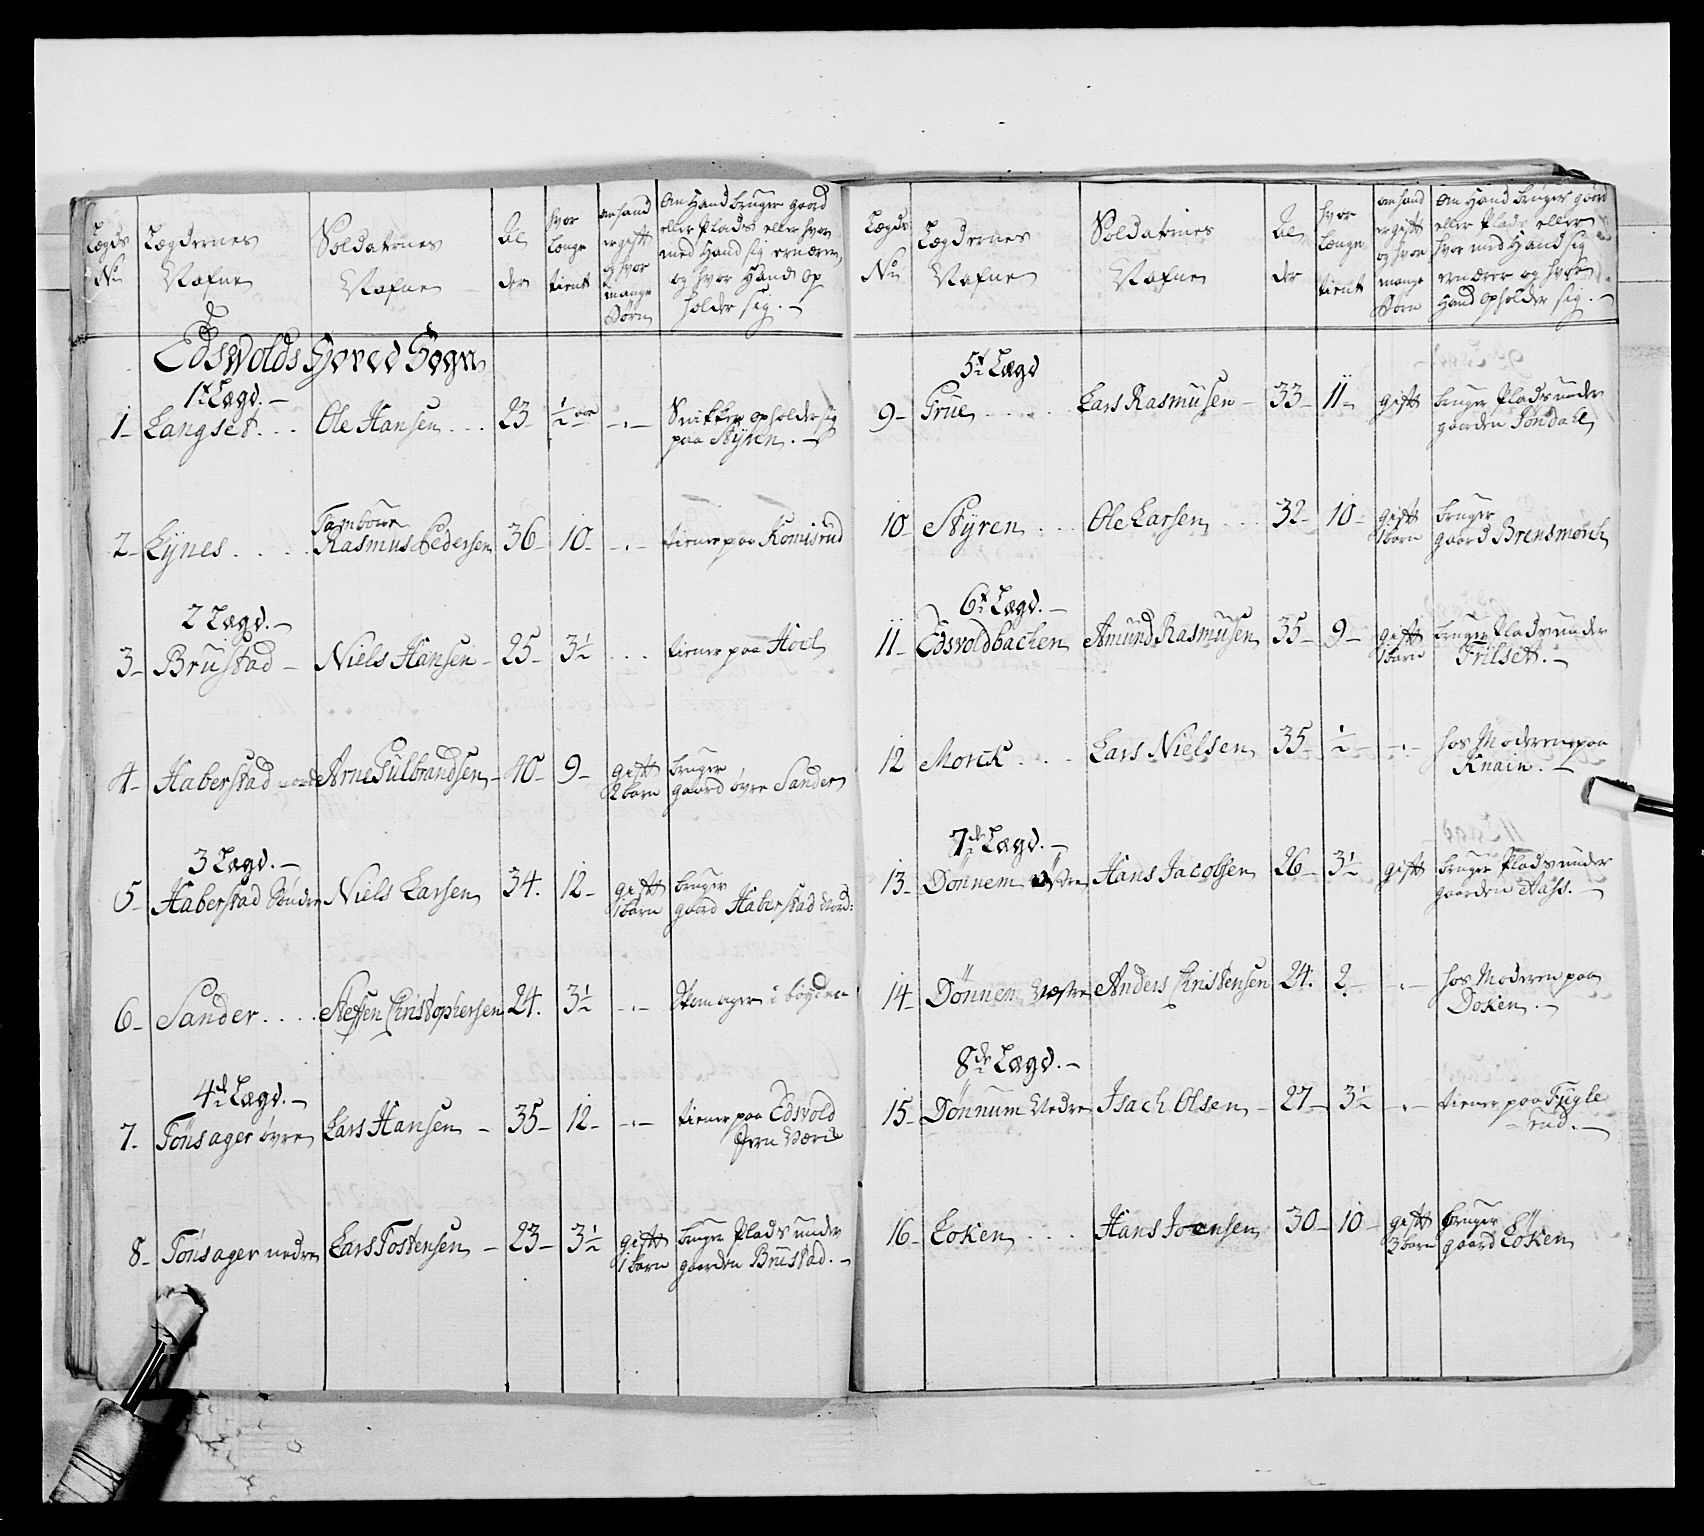 Lægds
No
Lægdernes
Nafne
Soldaternes
Nafne
Al
der
hvor
længe
tient
om hand
er gift
og hvor
mange
Børn
Om Hand bruger gaard
eller Plads eller hvor
med Hand sig ernærer,
og hvor Hand op
holder sig. -
Edsvolds Hoved Sogn
1te Lægd. -
1- Langset. . . Ole Hansen . . . 23- ½ aar -.- Snikker opholder sig
paa Styren. -
Tambour
2- Lynes . . . . Rasmus Pedersen 36- 10- -.- tiener paa Komisrud
2 Lægd. -
3- Brustad - Niels Hansen - 25- 3½ . . . tiener paa Hoel
4- Haberstad nordre Arne Gulbrandsen - 40- 9- gift
2 børn
bruger
gaard øvre Sander
3 Lægd. -
5- Haberstad Søndre Niels Larsen 34. 12- gift
1 barn
bruger
gaard Haberstad Nord:
6- Sander. . . . Steffen Christophersen 24. 3½ -.- i bøyden
4de Lægd. -
7. Tønsager øvre Lars Hansen - 35- 12- -.- tiener paa Edsvold
Jern Værck
8- Tønsager nedre Lars Tostensen - 23- 3½ gift
1 barn
bruger Plads under
gaarden Brustad. -
Lægds
No
Lægdernes
Nafne
Soldaternes
Nafne
Al
der
hvor
længe
tient
om hand
er gift
og hvor
mange
Børn
Om Hand bruger gaard
eller Plads eller
hvor med Hand sig
ernærer og hvor
Hand opholder sig. -
5te Lægd
9- Grue . . . . . Lars Rasmusen - 33- 11- gift bruger Plads under
gaarden Jøndahl
10- Styren . . . Ole Larsen . . . 32- 10- gift
1 barn
bruger
gaard Brensmorck
6te Lægd. -
11- Edsvoldbachen Amund Rasmusen 35- 9- gift
1 barn
bruger Plads under
Trilset. -
12 Morck . . . . Lars Nielsen 35- ½- -.- hos Moderen paa
Knain. -
7de Lægd. -
13- Dønnem Østre Hans Jacobsen 26- 3½ gift bruger Plads under
gaarden Aass. -
14- Dønnem Vestre Anders Christensen 24. 2- -.- hos Moderen paa
Doken. -
8de Lægd. -
15- Dønnum Nedre Isach Olsen - 27- 3½ -.- tiener paa Fugle
- rud. -
16- Løken . . . . Hans Joensen 30- 10- gift
3 børn
bruger
gaard Løken